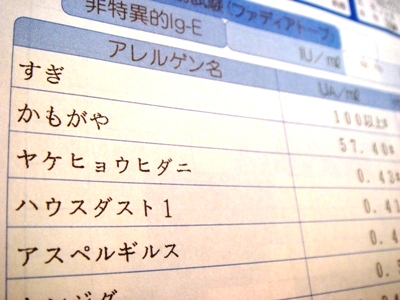 非特異的Ig-E
(ファディアトープ)
IU/ml
アレルゲン名
UA/ml
すぎ
100以上
かもがや
57.40
ヤケヒョウヒダニ
ハウスダスト1
アスペルギルス